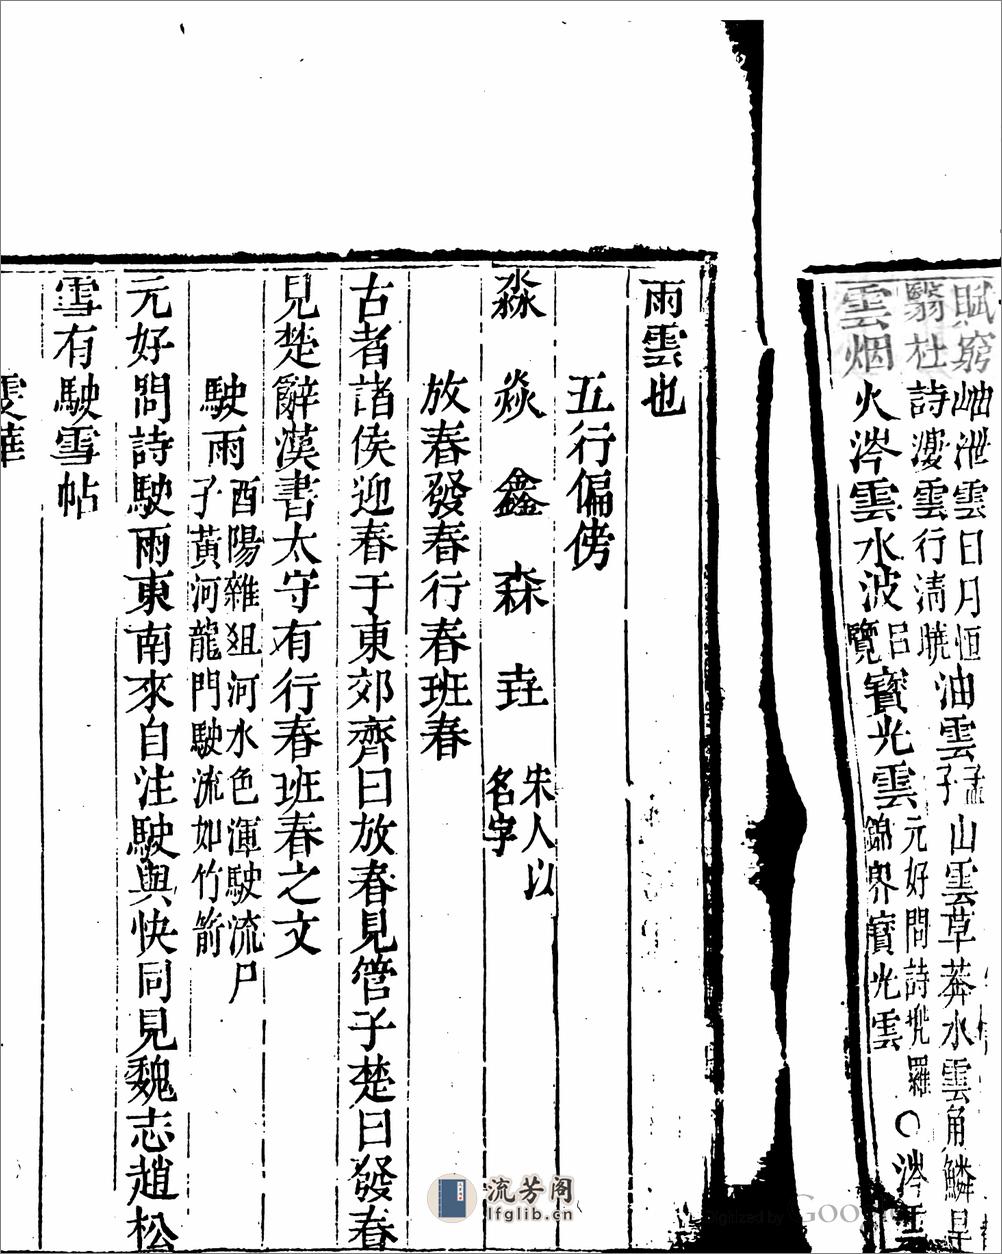 賦窮岫泄雲日月恒油雲孟子山雲草莽水雲角鱗
翳杜詩濩雲行清曉元好問詩兜羅○涔雲
雲烟火涔雲水波呂覽寳光雲錦界寳光雲
雨雲也
五行偏傍
淼焱鑫森壵朱人以名字
放春發春行春班春
古者諸侯迎春于東郊齊曰放春見管子楚曰發春
見楚辭漢書太守有行春班春之文
駛雨酉陽雜俎河水色渾駛流尸子黃河龍門駛流如竹箭
元好問詩駛雨東南來自注駛與快同見魏志趙松
雪有駛雪帖
流芳阁
lfglib.cn
Digitized by Google